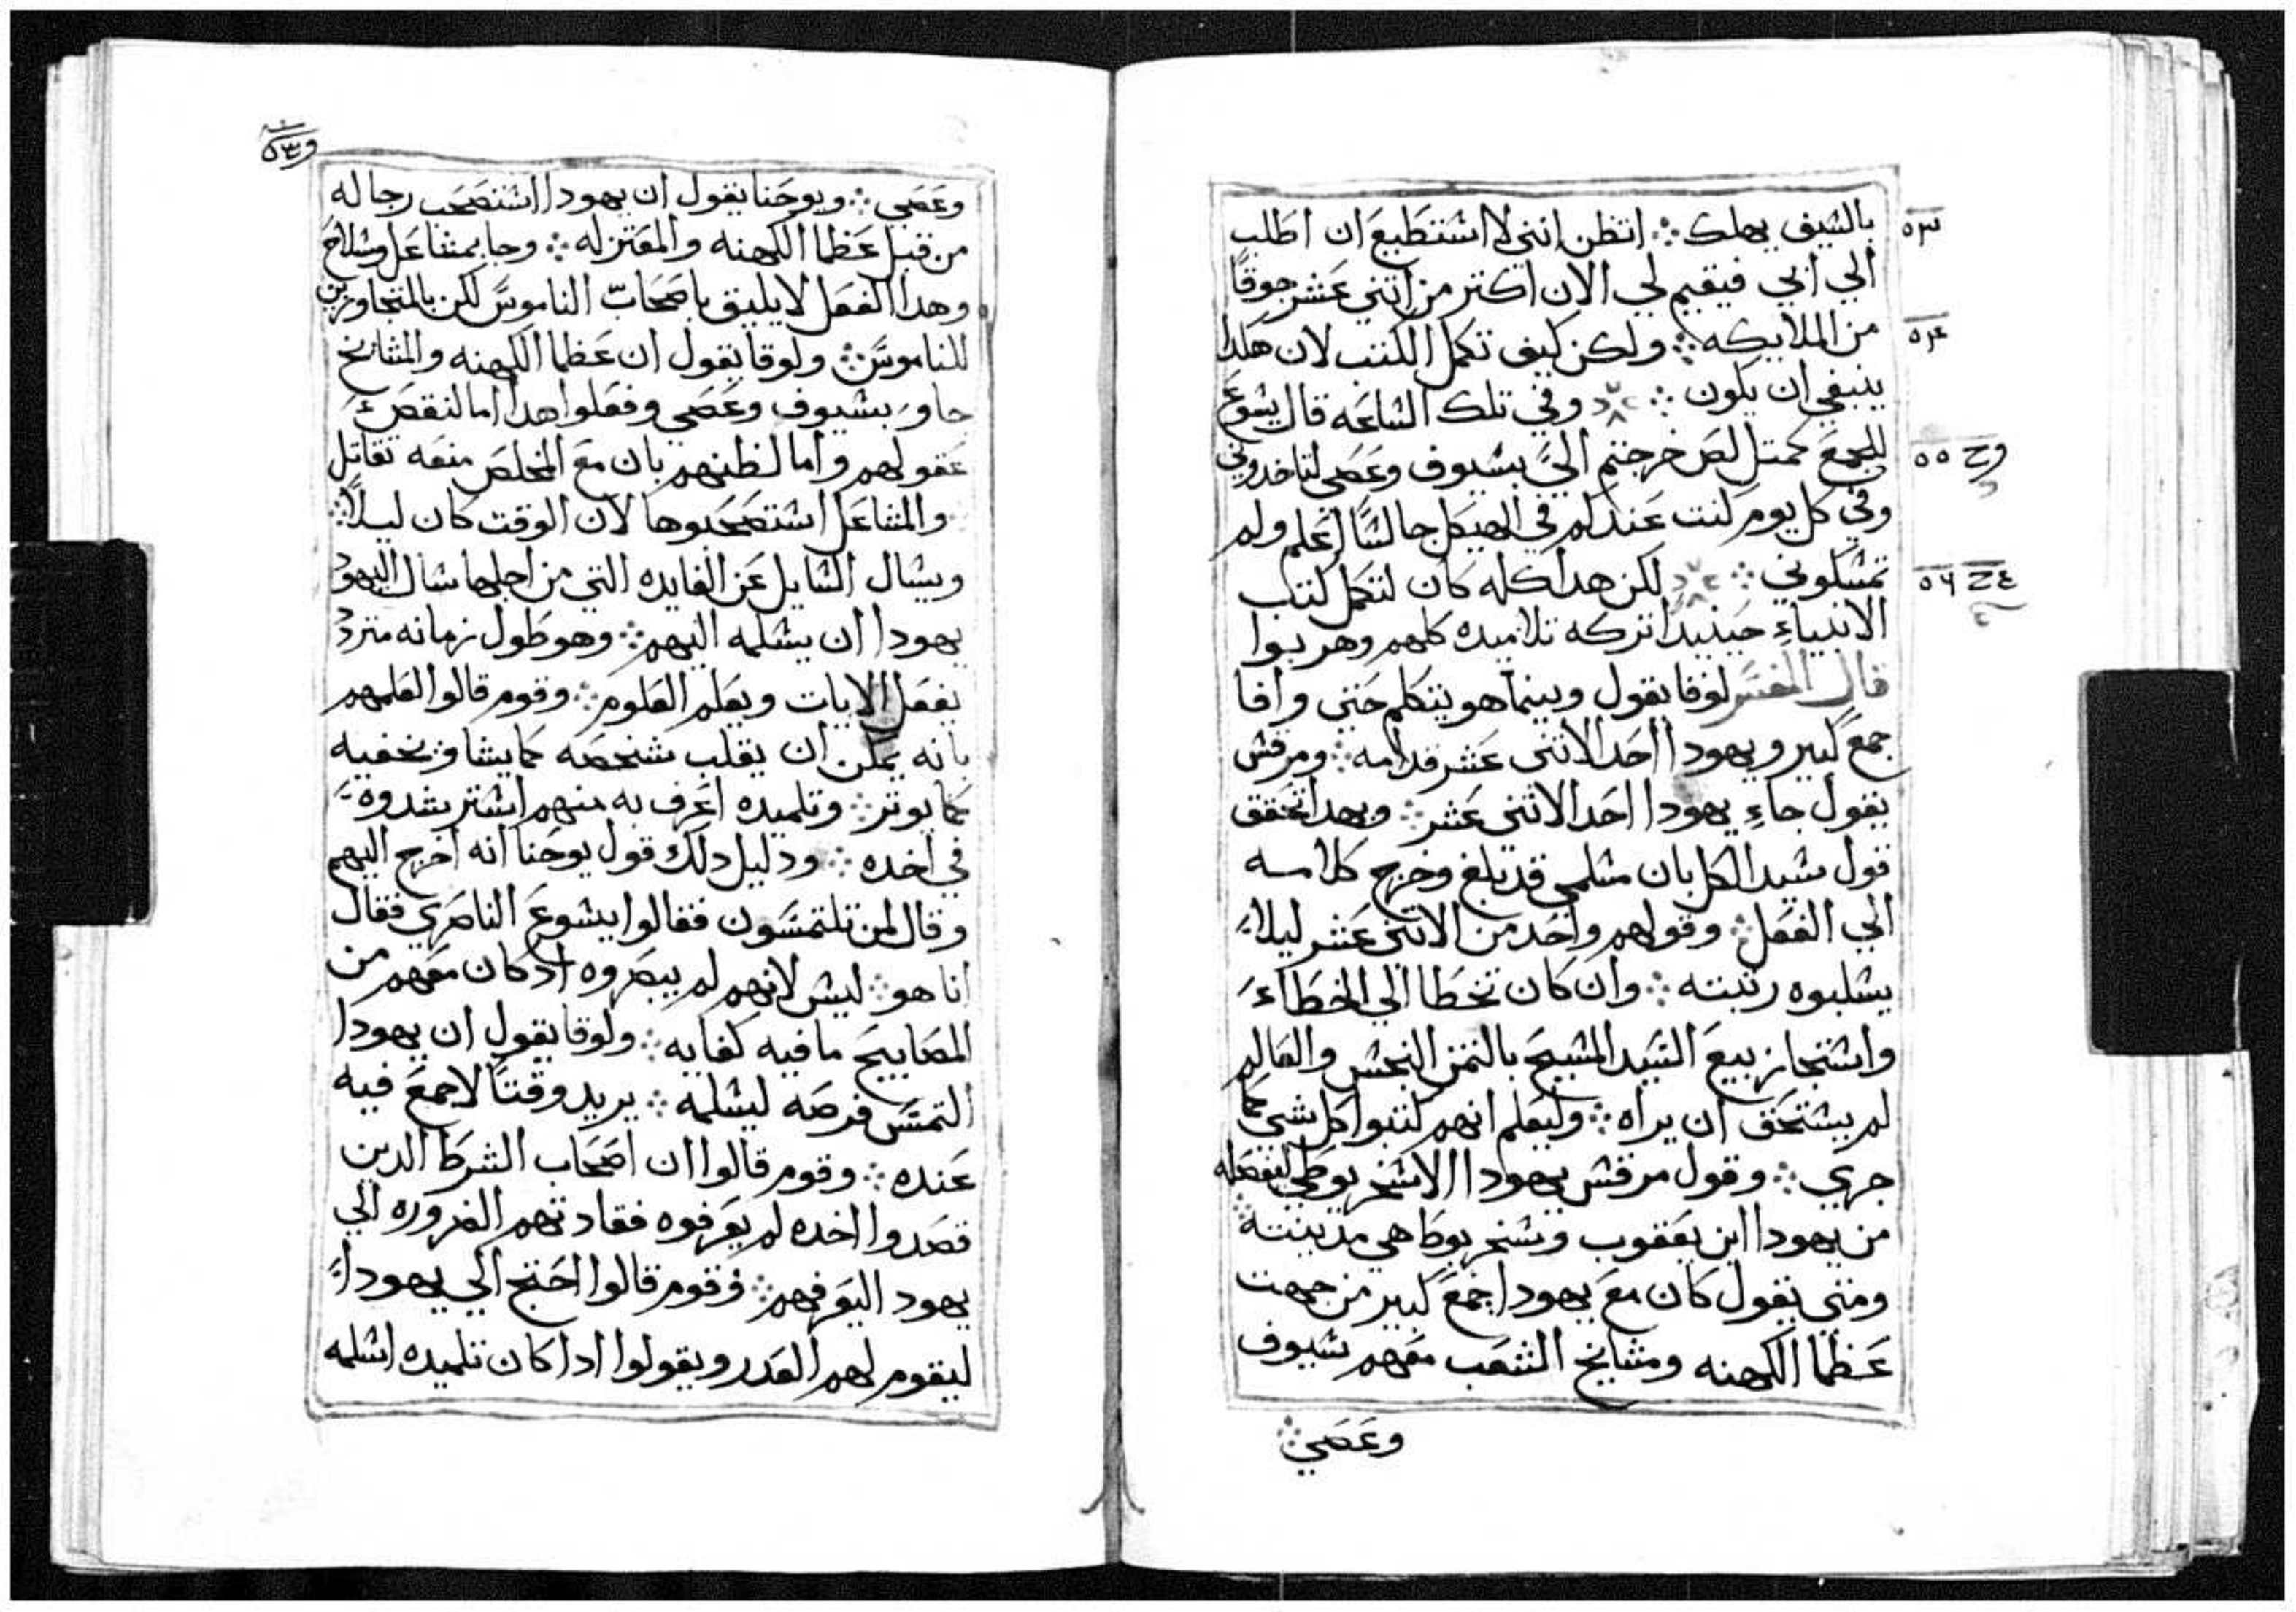 بالشيف يهلك ܀ اتظن انني لا اشتطيع ان اطلب
الي ابي فيقيم لي الان اكتر من اتني عشر جوقًا
من الملايكه ܀ ولكن كيف تكمل الكتب لان هكدا
ينبغي ان يكون ܀ وفي تلك الشاعه قال يشوع
للجمع كمتل لص خرجتم اليّ بشيوف وعصي لتاخدوني
وفي كل يوم كنت عندكم في الهيكل جالشًا اعلم ولم
تمشكوني ܀ لكن هدا كله كان لتكمل كتب
الانبياءِ حينيدٍ اتركه تلاميده كلهم وهربوا
قال المفشر لوقا يقول وبينما هو يتكلم حتي وافا
جمع كبير ويهودا احد الاتني عشر قدامه ܀ ومرقش
يقول جاءِ يهودا احد الاتني عشر ܀ وبهدا تحقق
قول شيد الكل بان مشلمي قد بلغ وخرج كلامه
الي الفعل ܀ وقولهم واحد من الاتني عشر ليلا
يشلبوه رتبته ܀ وان كان تخطا الي الخطاء
واشتجاز بيع الشيد المشيح بالتمن النجش والعالم
لم يشتحق ان يراه ܀ وليعلم انهم كتبوا كل شي كما
جري ܀ وقول مرقش يهودا الاشخريوطي ليفصله
من يهودا ابن يعقوب وشخريوطا هي مدينته ܀
ومتي يقول كان مع يهودا جمع كبير من جهت
عظما الكهنه ومشايخ الشعب معهم شيوف
وعصي ܀
٥٣
٥٤
وح ٥٥
عح ٥٦
وعصي ܀ ويوحنا يقول ان يهودا اشتصحب رجاله
من قبل عظما الكهنه والمعتزله ܀ وجا بمشاعل وشلاح
وهدا الفعل لا يليق باصحاب الناموش لكن بالمتجاوزين
للناموش ܀ ولوقا يقول ان عظما الكهنه والمشايخ
جاو بشيوف وعصي وفعلوا هدا اما لنقص
عقولهم واما لظنهم بان مع المخلص منعه تقاتل
والمشاعل اشتصحبوها لان الوقت كان ليلاً ܀
ويشال الشايل عن الفايده التي من اجلها شال اليهود
يهودا ان يشلمه اليهم ܀ وهو طول زمانه متردد
يفعل الايات ويعلم العلوم ܀ وقوم قالوا لعلمهم
بانه يمكن ان يقلب شخصه كما يشا ويخفيه
كما يوتر ܀ وتلميده اعرف به منهم اشترشدوه
في اخده ܀ ودليل دلك قول يوحنا انه اخرج اليهم
وقال لمن تلتمشون فقالوا ليشوع الناصري فقال
انا هو ܀ ليش لانهم لم يبصروه اد كان معهم من
المصابيح ما فيه كفايه ܀ ولوقا يقول ان يهودا
التمش فرصه ليشلمه ܀ يريد وقتًا لا جمع فيه
عنده ܀ وقوم قالوا ان اصحاب الشرط الدين
قصدوا اخده لم يعرفوه فقادتهم الضروره الي
يهود اليعرفهم ܀ وقوم قالوا احتج الي يهودا
ليقوم لهم العدر ويقولوا ادا كان تلميده اشلمه